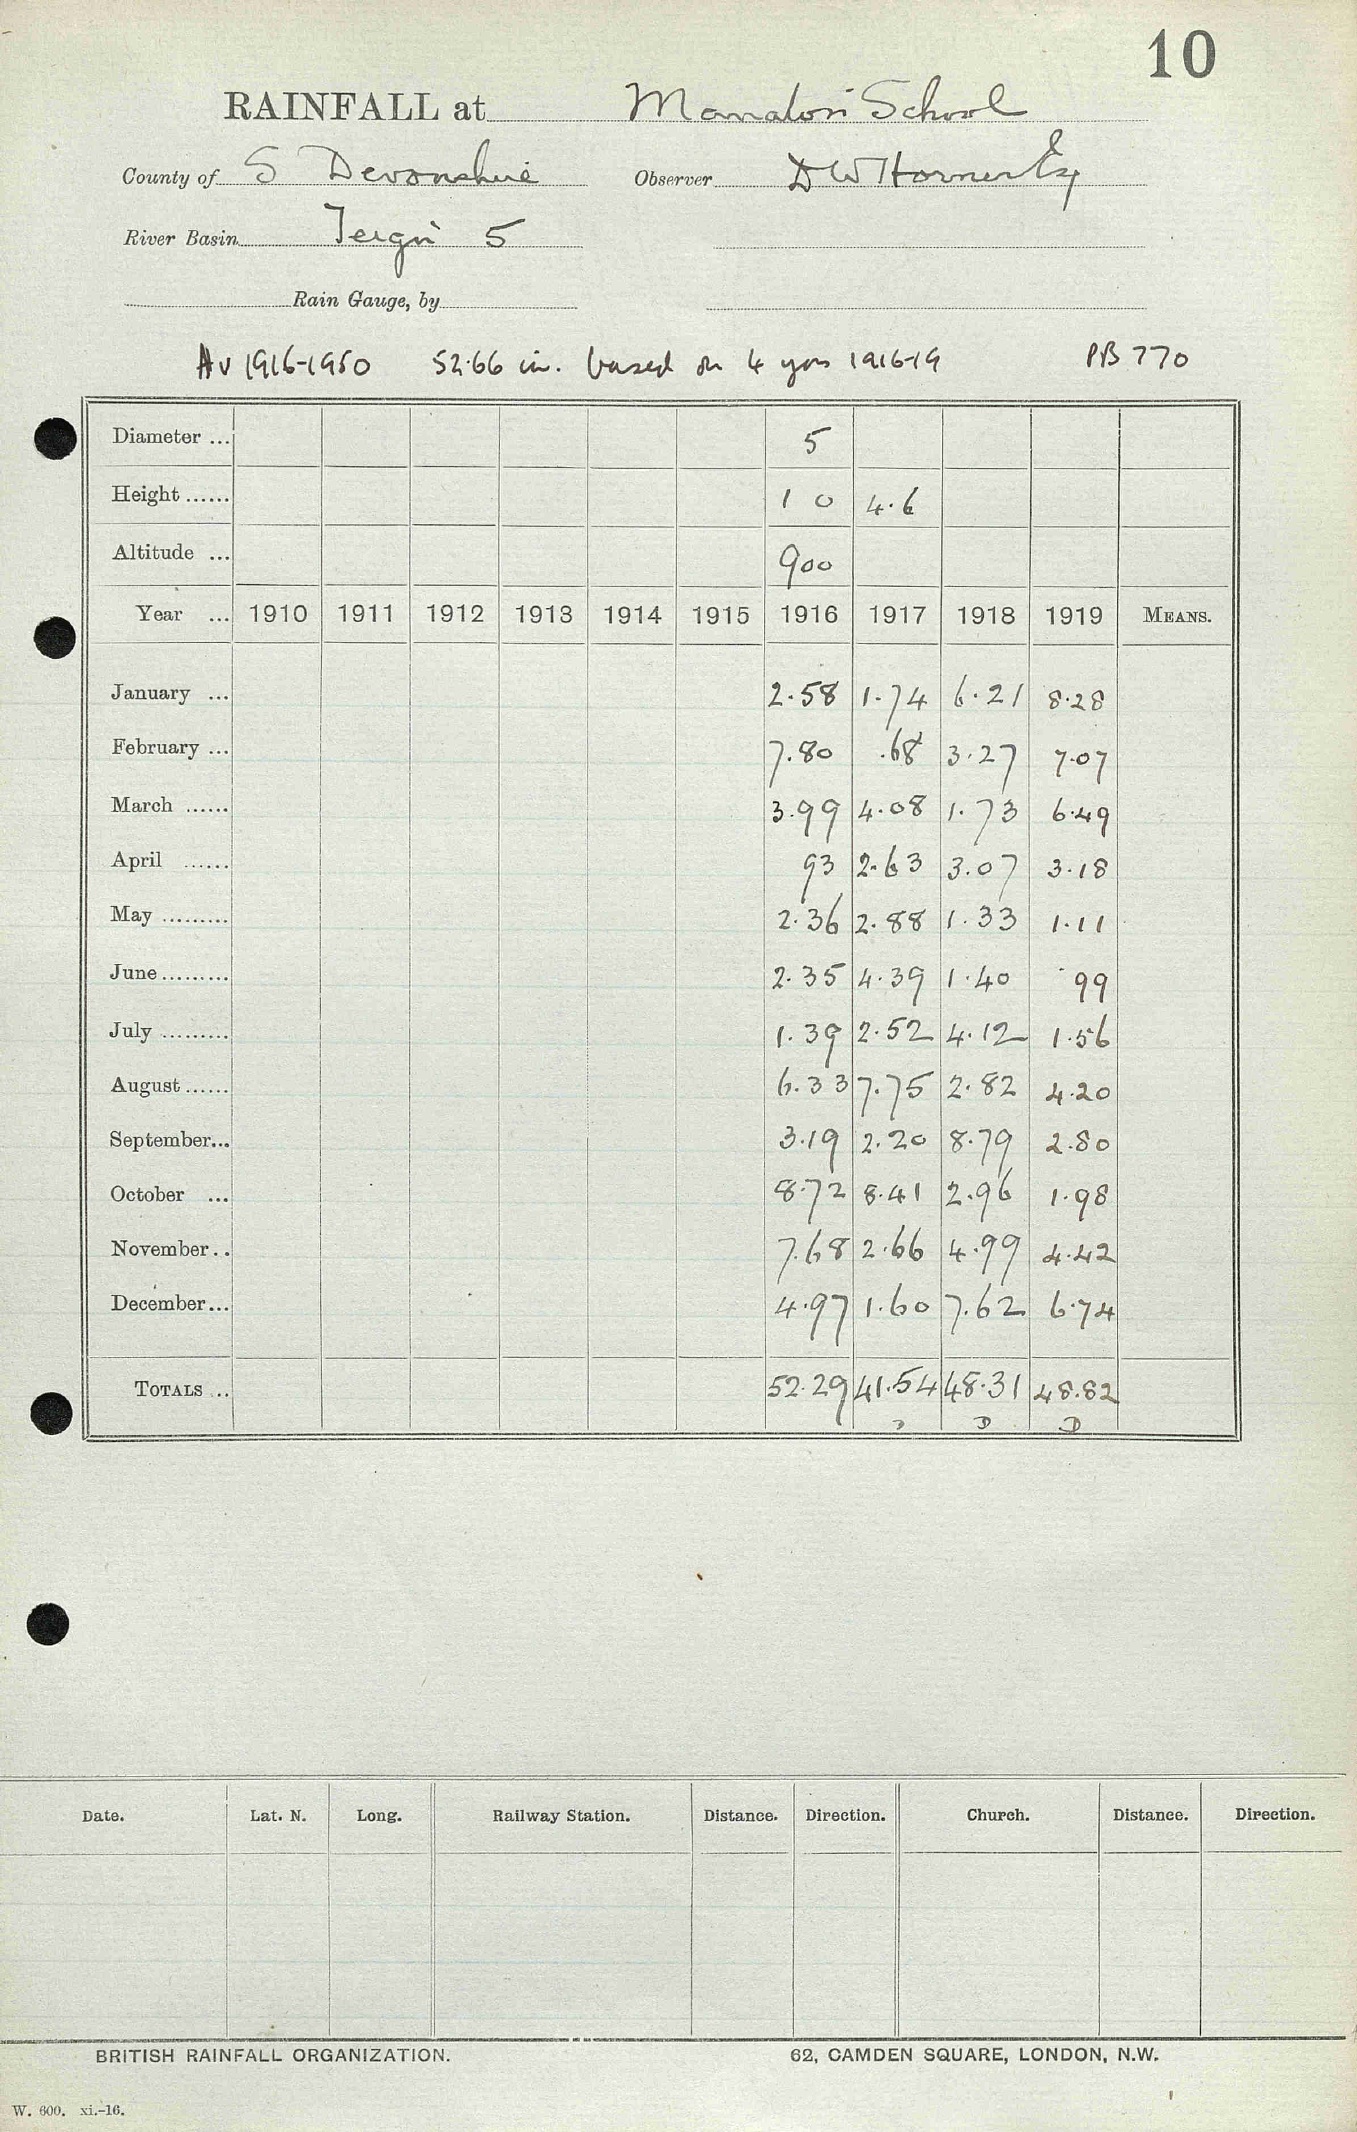 10
RAINFALL at Manaton School
County of S Devonshire Observer D W Horner Esq
River Basin Teign 5
Rain Gauge, by
Av 1916-1950 52.66 in. based on 4 yrs 1916-19 PB 770
Diameter ... 5
Height ...... 1 0 4.6
Altitude ... 900
Year ... 1910 1911 1912 1913 1914 1915 1916 1917 1918 1919 MEANS.
January ... 2.58 1.74 6.21 8.28
February ... 7.80 .68 3.27 7.07
March ...... 3.99 4.08 1.73 6.49
April ...... 93 2.63 3.07 3.18
May ......... 2.36 2.88 1.33 1.11
June ......... 2.35 4.39 1.40 .99
July ......... 1.39 2.52 4.12 1.56
August ...... 6.33 7.75 2.82 4.20
September... 3.19 2.20 8.79 2.80
October ... 8.72 8.41 2.96 1.98
November.. 7.68 2.66 4.99 4.42
December... 4.97 1.60 7.62 6.74
TOTALS ... 52.29 41.54 48.31 48.82
D D D
Date. Lat. N. Long. Railway Station. Distance. Direction. Church. Distance. Direction.
BRITISH RAINFALL ORGANIZATION. 62, CAMDEN SQUARE, LONDON, N.W.
W. 600. xi.-16.